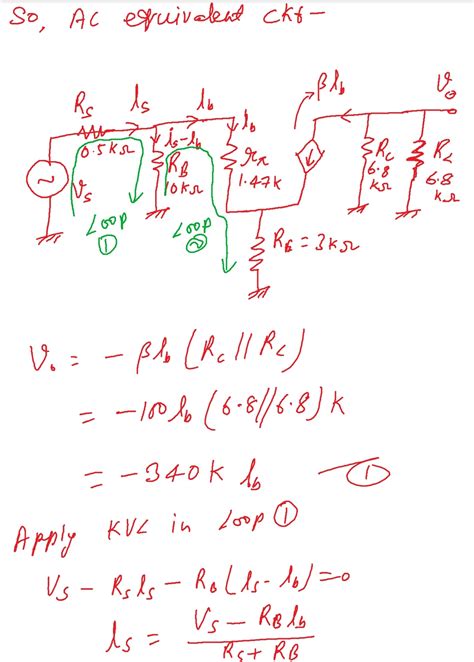 So, AC equivalent ckt-
βi_b
V_o
R_s
i_s
i_b
0.5kΩ
i_s-i_b
i_b
R_B
10kΩ
r_π
1.47k
R_C
6.8
kΩ
R_L
6.8
kΩ
V_s
Loop
①
Loop
②
R_E = 3kΩ
V_o = - βi_b (R_C || R_L)
= -100 i_b (6.8//6.8) k
= -340K i_b ①
Apply KVL in Loop ①
V_s - R_s i_s - R_B (i_s - i_b) = 0
i_s = V_s - R_B i_b
R_s + R_B